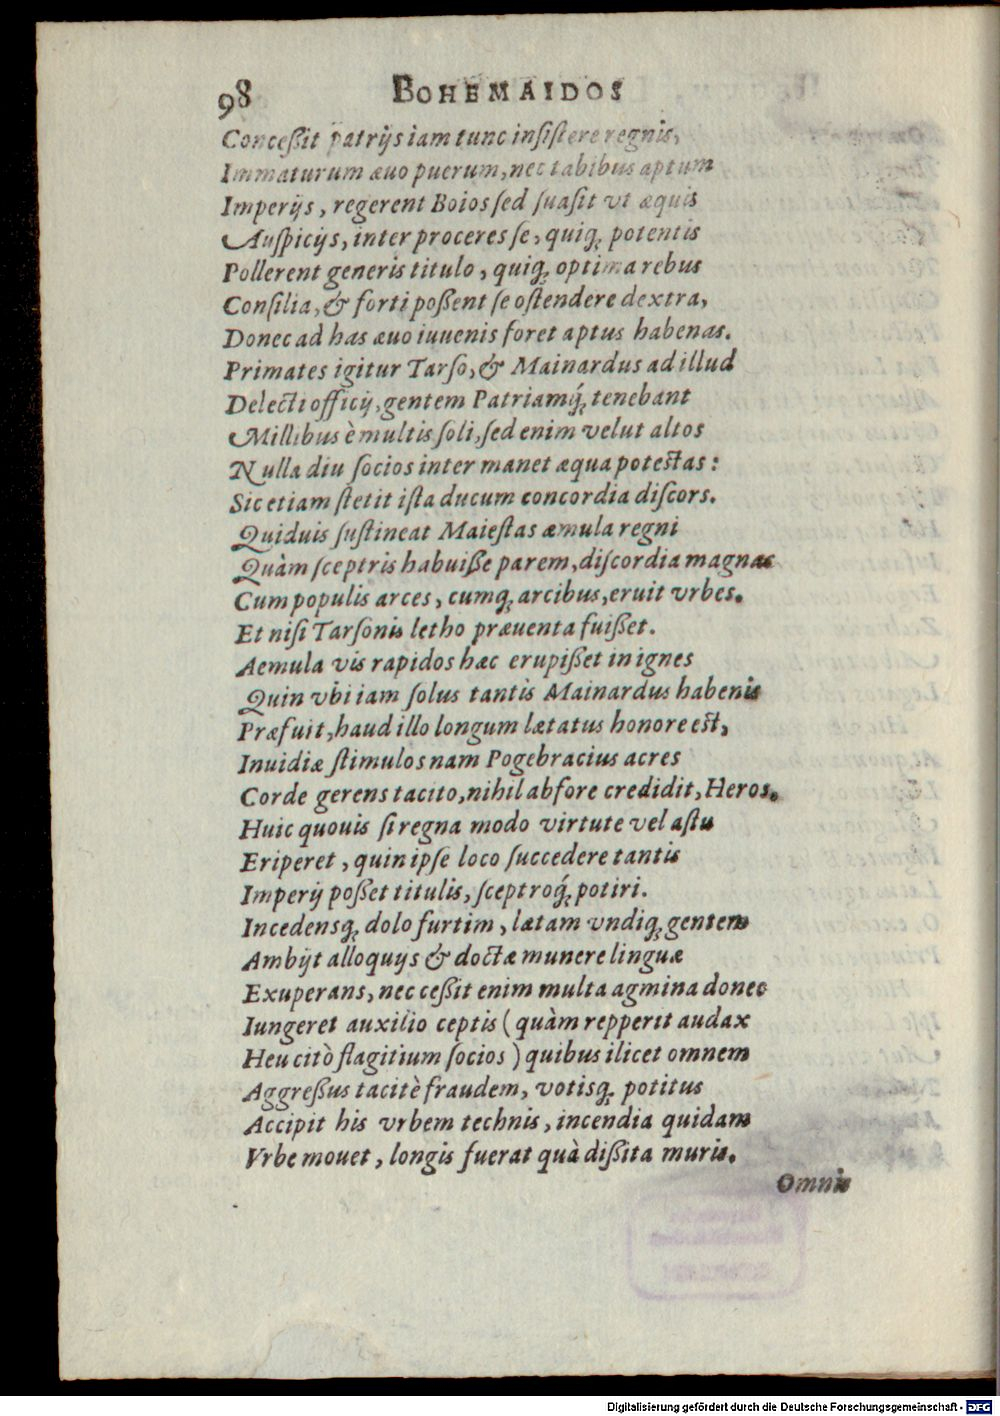 98 BOHEMAIDOS
Conceßit patrijs iam tunc insistere regnis,
Immaturum æuo puerum, nec tabibus aptum
Imperijs, regerent Boios sed suasit vt æquis
Auspicijs, inter proceres se, quiq; potentis
Pollerent generis titulo, quiq; optima rebus
Consilia, & forti poßent se ostendere dextra,
Donec ad has æuo iuuenis foret aptus habenas.
Primates igitur Tarso, & Mainardus ad illud
Delecti officij, gentem Patriamq́; tenebant
Millibus è multis soli, sed enim velut altos
Nulla diu socios inter manet æqua potestas:
Sic etiam stetit ista ducum concordia discors.
Quiduis sustineat Maiestas æmula regni
Quàm sceptris habuiße parem, discordia magnas
Cum populis arces, cumq; arcibus, eruit vrbes.
Et nisi Tarsonis letho præuenta fuißet.
Aemula vis rapidos hæc erupißet in ignes
Quin vbi iam solus tantis Mainardus habenis
Præfuit, haud illo longum lætatus honore est,
Inuidiæ stimulos nam Pogebracius acres
Corde gerens tacito, nihil abfore credidit, Heros.
Huic quouis si regna modo virtute vel astu
Eriperet, quin ipse loco succedere tantis
Imperij poßet titulis, sceptroq́; potiri.
Incedensq; dolo furtim, lætam vndiq; gentem
Ambijt alloquijs & doctæ munere linguæ
Exuperans, nec ceßit enim multa agmina donec
Iungeret auxilio ceptis (quàm repperit audax
Heu citò flagitium socios) quibus ilicet omnem
Aggreßus tacitè fraudem, votisq; potitus
Accipit his vrbem technis, incendia quidam
Vrbe mouet, longis fuerat quà dißita muris.
Omnis
Digitalisierung gefördert durch die Deutsche Forschungsgemeinschaft - DFG